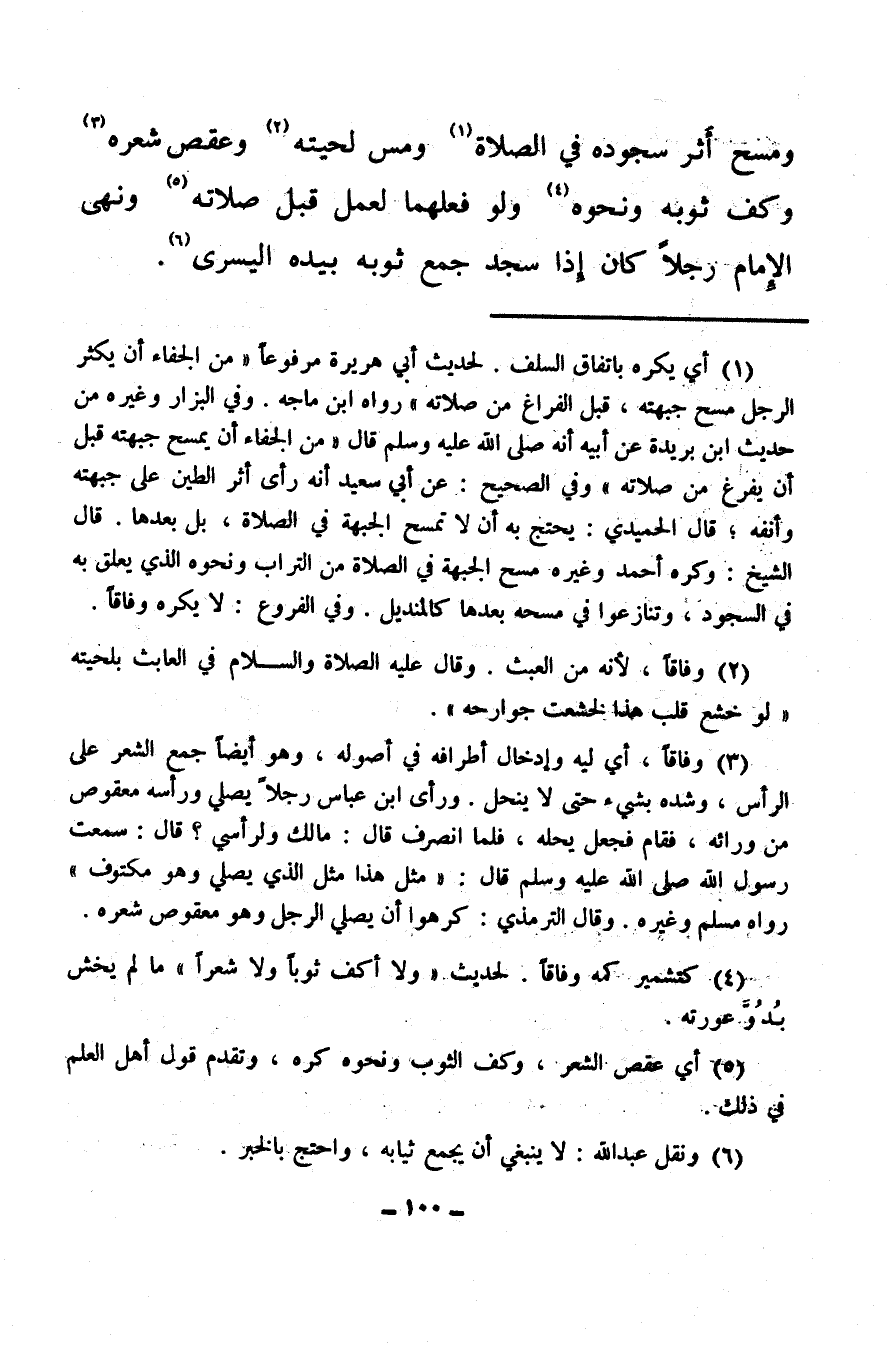 ومسح أَثر سجوده في الصلاة(١) ومس لحيته(٢) وعقص شعره(٣)
وكف ثوبه ونحوه(٤) ولو فعلهما لعمل قبل صلاته(٥) ونهى
الإِمام رجلاً كان إِذا سجد جمع ثوبه بيده اليسرى(٦) .
(١) أي يكره باتفاق السلف . لحديث أبي هريرة مرفوعاً « من الجفاء أن يكثر
الرجل مسح جبهته ، قبل الفراغ من صلاته » رواه ابن ماجه . وفي البزار وغيره من
حديث ابن بريدة عن أبيه أنه صلى الله عليه وسلم قال « من الجفاء أن يمسح جبهته قبل
أن يفرغ من صلاته » وفي الصحيح : عن أبي سعيد أنه رأى أثر الطين على جبهته
وأنفه ؛ قال الحميدي : يحتج به أن لا تمسح الجبهة في الصلاة ، بل بعدها . قال
الشيخ : وكره أحمد وغيره مسح الجبهة في الصلاة من التراب ونحوه الذي يعلق به
في السجود ، وتنازعوا في مسحه بعدها كالمنديل . وفي الفروع : لا يكره وفاقاً .
(٢) وفاقاً ، لأنه من العبث . وقال عليه الصلاة والسـلام في العابث بلحيته
« لو خشع قلب هذا لخشعت جوارحه » .
(٣) وفاقاً ، أي ليه وإدخال أطرافه في أصوله ، وهو أيضاً جمع الشعر على
الرأس ، وشده بشيء حتى لا ينحل . ورأى ابن عباس رجلاً يصلي ورأسه معقوص
من ورائه ، فقام فجعل يحله ، فلما انصرف قال : مالك ولرأسي ؟ قال : سمعت
رسول الله صلى الله عليه وسلم قال : « مثل هذا مثل الذي يصلي وهو مكتوف »
رواه مسلم وغيره . وقال الترمذي : كرهوا أن يصلي الرجل وهو معقوص شعره .
(٤) كتشمير كمه وفاقاً . لحديث « ولا أكف ثوباً ولا شعراً » ما لم يخش
بُدُوَّ عورته .
(٥) أي عقص الشعر ، وكف الثوب ونحوه كره ، وتقدم قول أهل العلم
في ذلك .
(٦) ونقل عبدالله : لا ينبغي أن يجمع ثيابه ، واحتج بالخبر .
ـ ١٠٠ ـ